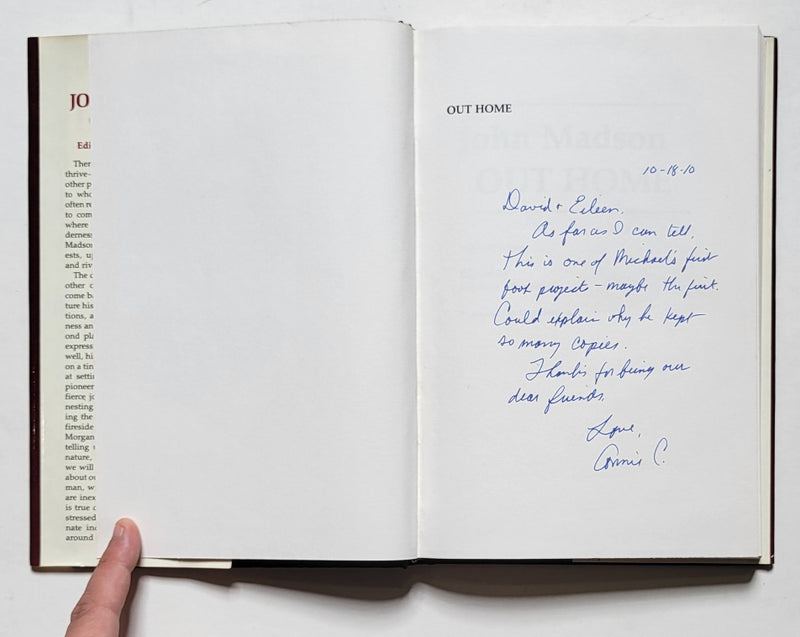 JO
Edi
Ther
thrive-
other p
to who
often re
to com
where
derness
Madso
ests, u
and riv
The c
other c
come b
ture his
tions, a
ness an
ond pla
express
well, hi
on a tin
at setti
pioneer
fierce jo
nesting
ing the
fireside
Morgan
telling
nature,
we will
about ou
man, w
are inex
is true
stressed
nate inc
around
OUT HOME
John Madson
OUT HOME
10-18-10
David + Eileen,
As far as I can tell,
this is one of Michael's first
book project - maybe the first.
Could explain why he kept
so many copies.
Thanks for being our
dear friends.
Love,
Connie C.